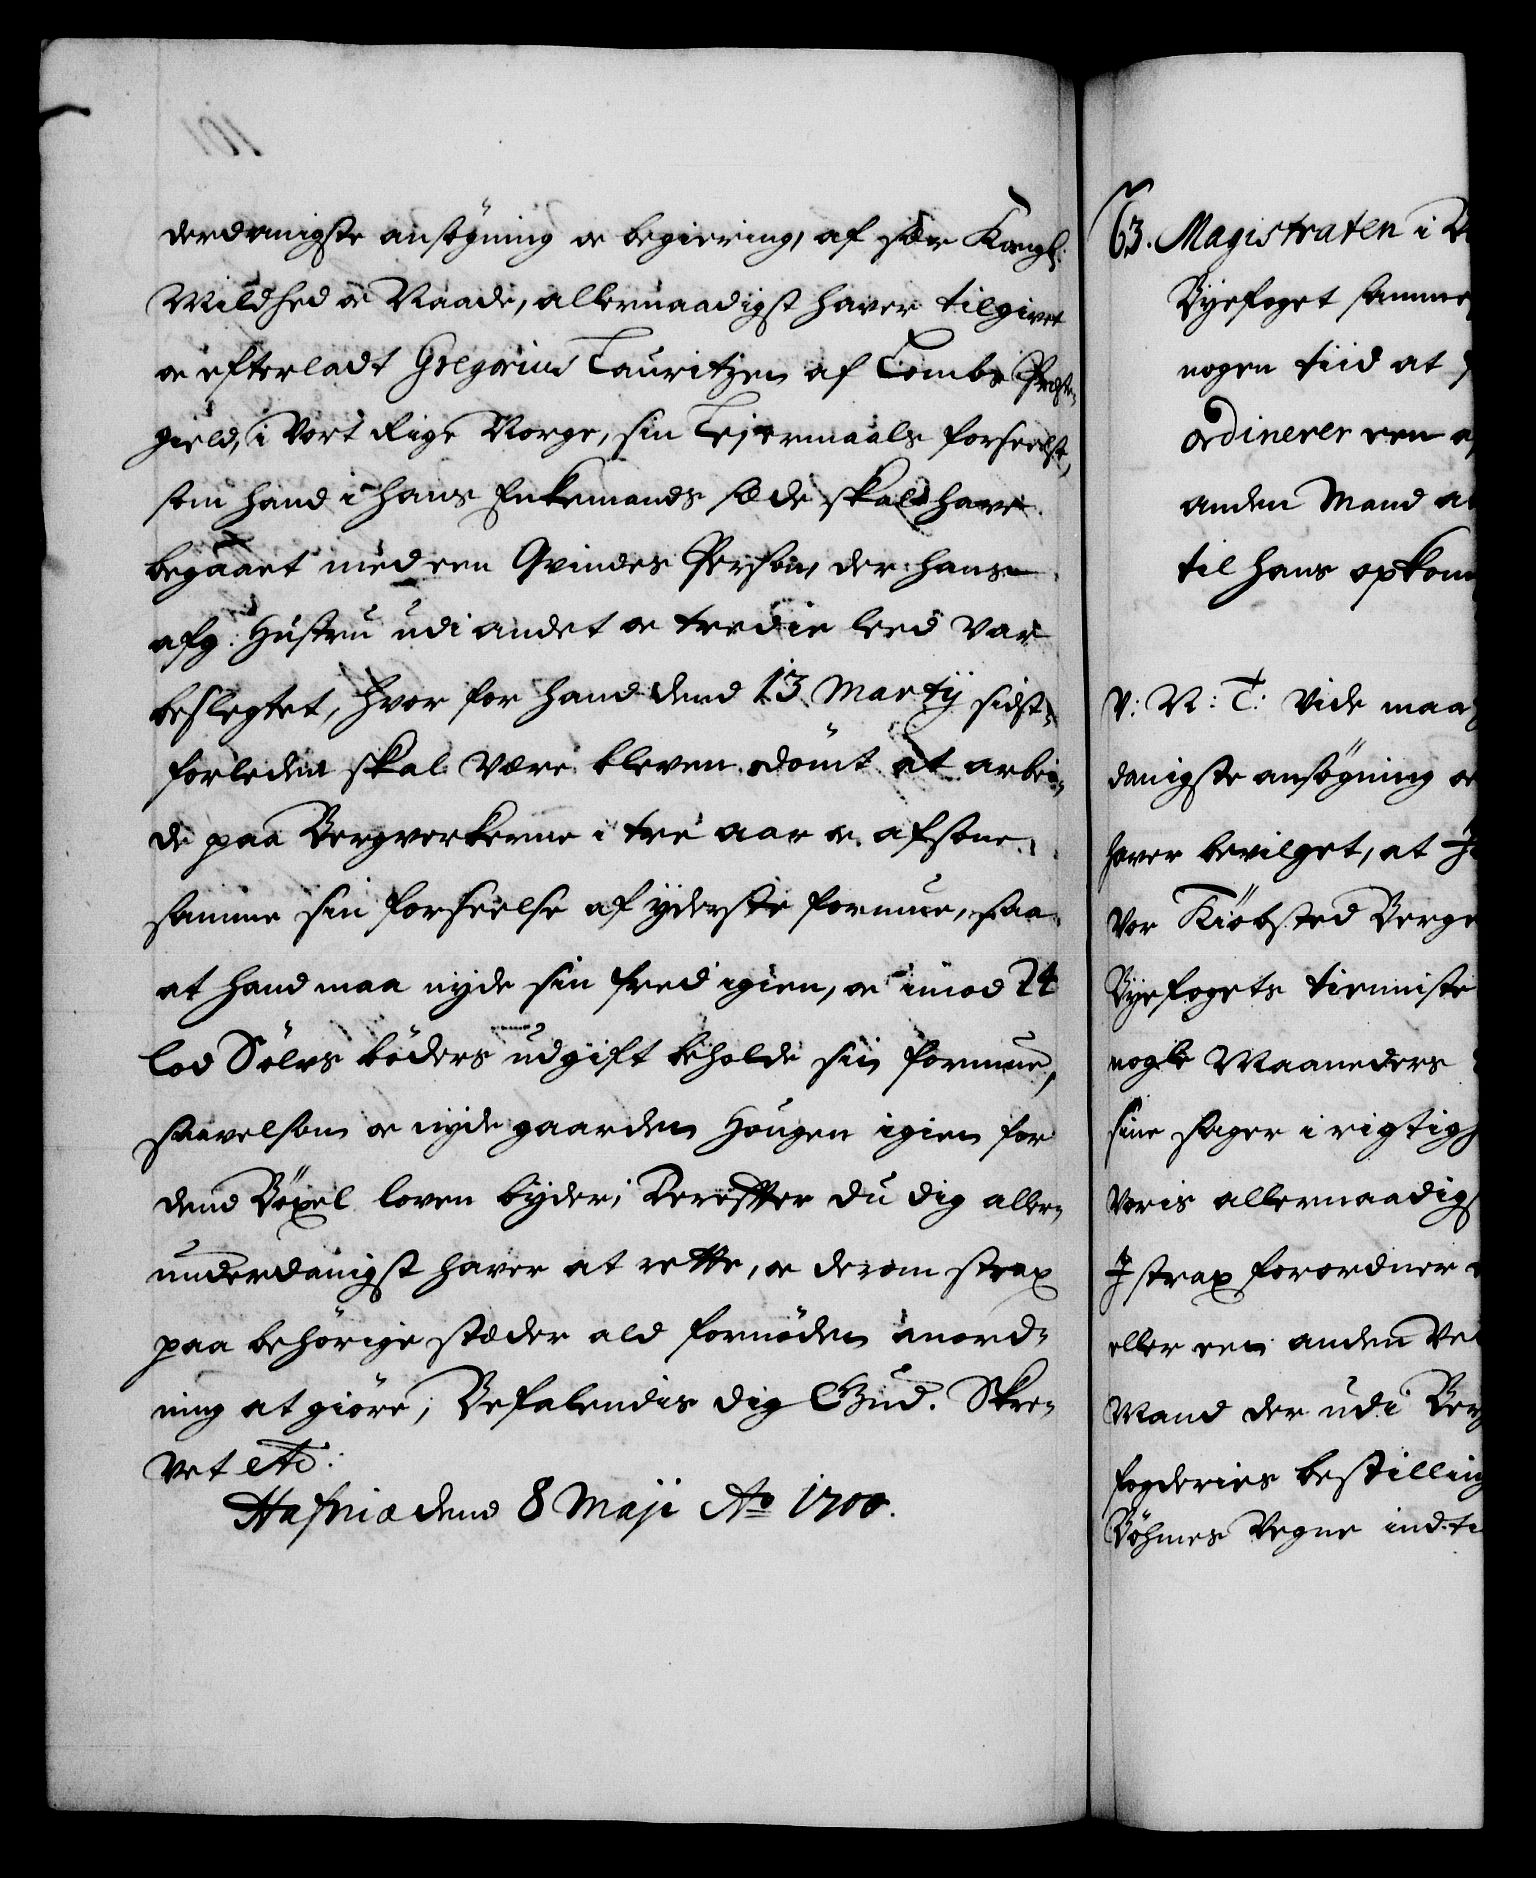 derdanigste ansögning oc begiering, af sær Kongl:
Mildhed oc Naade, allernaadigst haver tilgivet
oc efterladt Gregorius Lauritzen af Tombs Præste-
gield, i Vort Rige Norge, sin Lejermaals forseelse,
som hand i hans Enkemands sæde skal have
begaaet med een Qvindes Person, der hans
afg: Hustru udi andet oc tredie leed var
beslegtet, hvor for hand dend 13 Martij sidst-
forleden skal være bleven dömt at arbei-
de paa Bergverkerne i tre aar oc afsone
samme sin forseelse af yderste formue, saa
at hand maa nyde sin fred igien, oc imod 24
lod Sölvs böders udgift beholde sin formue,
saavelsom oc nyde gaarden Hougen igien for
dend Böxel loven byder; Derefter du dig aller-
underdanigst haver at rette, oc derom strax
paa behörige stæder ald fornöden anord-
ning at giöre; Befalendis dig Gud. Skre-
vet etc:
Hafniæ dend 8 Maji Ao 1700.
63. Magistraten i
Byefoget samme
nogen tiid at
ordinerer een
anden Mand
til hans opkom
V: N: T: Vide maa
danigste ansögning oc
haver bevilget, at
vor Kiöbsted Berge
Byefogets tienniste
nogle Maaneders
sine sager i rigtig
Voris allernaadigs
I strax forordner
eller een anden
Mand der udi Ber
fogderies bestilling
Böhmes Vegne ind-ti